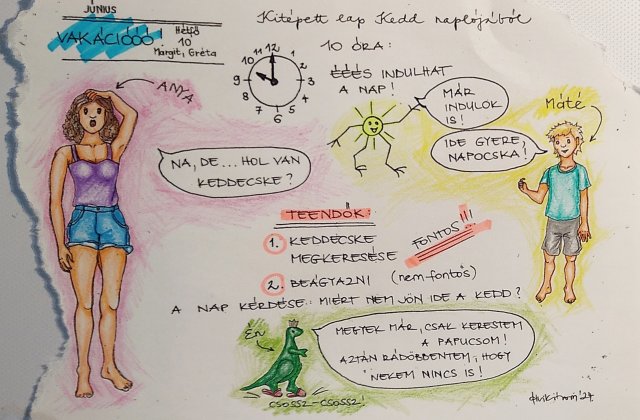 JÚNIUS
Kitépett lap Kedd naplójából
VAKÁCIÓÓÓ!
Hétfő
10
Margit, Gréta
10 ÓRA:
12
1
2
3
4
5
6
7
8
9
10
11
ÉÉÉS INDULHAT
A NAP!
ANYA
MÁR
INDULOK
IS!
Máté
IDE GYERE,
NAPOCSKA!
NA, DE... HOL VAN
KEDDECSKE?
TEENDŐK:
1. KEDDECSKE
MEGKERESÉSE
FONTOS!!!
2. BEÁGYAZNI (nem fontos)
A NAP KÉRDÉSE: MIÉRT NEM JÖN IDE A KEDD?
Én
MEGYEK MÁR, CSAK KERESTEM
A PAPUCSOM!
AZTÁN RÁDÖBBENTEM, HOGY
NEKEM NINCS IS!
CSOSSZ-CSOSSZ!